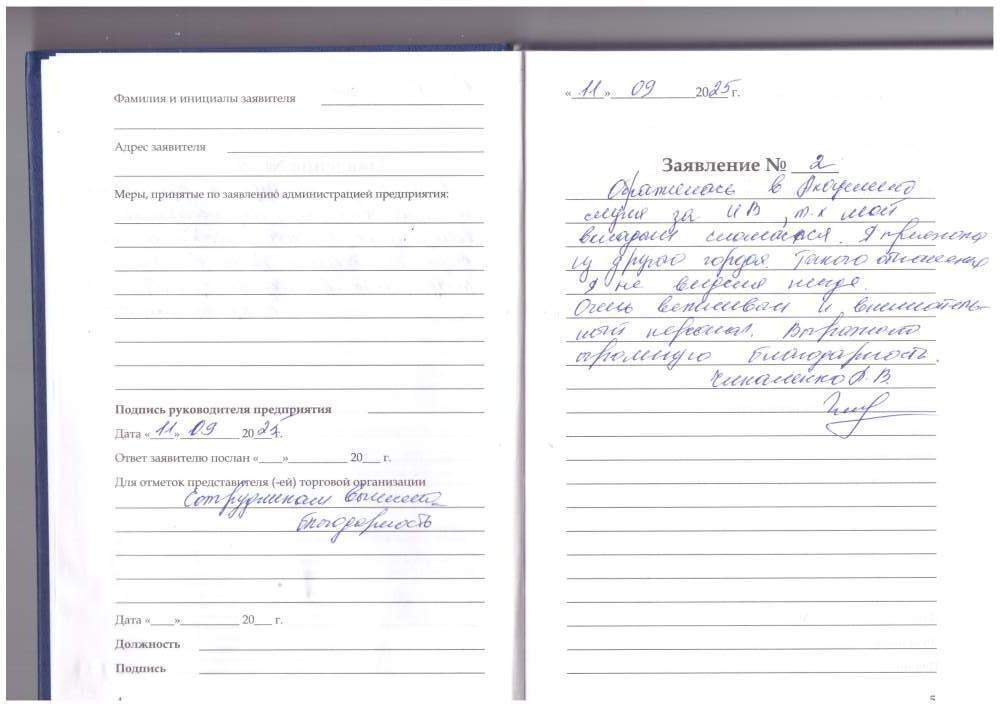 Фамилия и инициалы заявителя
Адрес заявителя
Меры, принятые по заявлению администрацией предприятия:
Подпись руководителя предприятия
Дата «11» 09 2025 г.
Ответ заявителю послан «___» __________ 20___ г.
Для отметок представителя (-ей) торговой организации
Сотрудникам вынести
благодарность
Дата «____»__________ 20___ г.
Должность
Подпись
4
«11» 09 2025 г.
Заявление № 2
Обратилась в Академию
слуха за ИВ, т.к мой
вкладыш сломался. Я приехала
из другого города. Такого отношения
я не видела нигде.
Очень вежливый и внимательный
персонал. Выражаю
огромную благодарность.
5